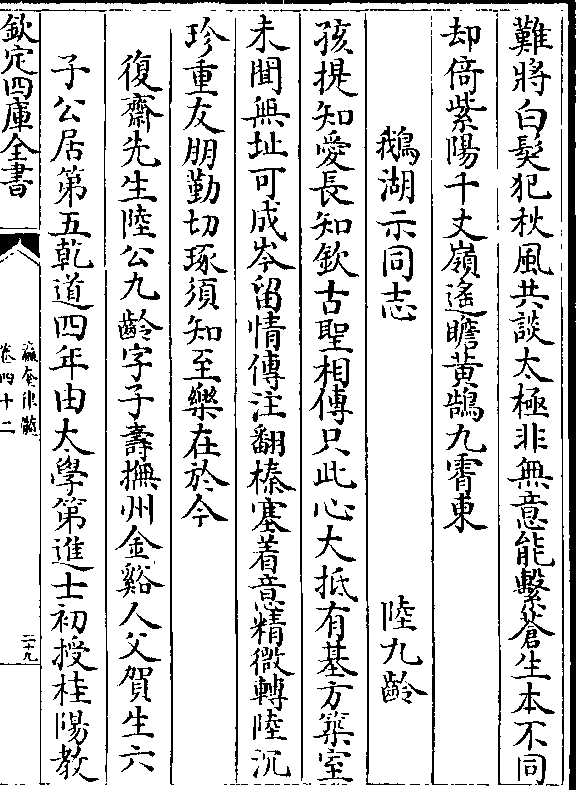 難將白髮犯秋風共談太極非無意能繫蒼生本不同
却倚紫陽千丈嶺遙瞻黃鵠九霄東
鵝湖示同志　陸九齡
孩提知愛長知欽古聖相傳只此心大抵有基方築室
未聞無址可成岑留情傳注翻榛塞着意精微轉陸沉
珍重友朋勤切琢須知至樂在於今
復齋先生陸公九齡字子壽撫州金谿人父賀生六
子公居第五乾道四年由太學第進士初授桂陽教
欽定四庫全書
瀛奎律髓
卷四十二
二十九